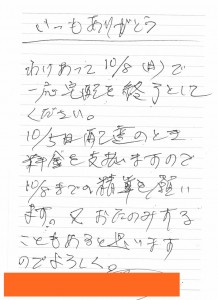 いつもありがとう
わけあって10/8(月)で
一応宅配を終了として
ください。
10/5日配達のとき
料金を支払いますので
10/8までの精算を願い
ます。又おたのみする
こともあると思います
のでよろしく。